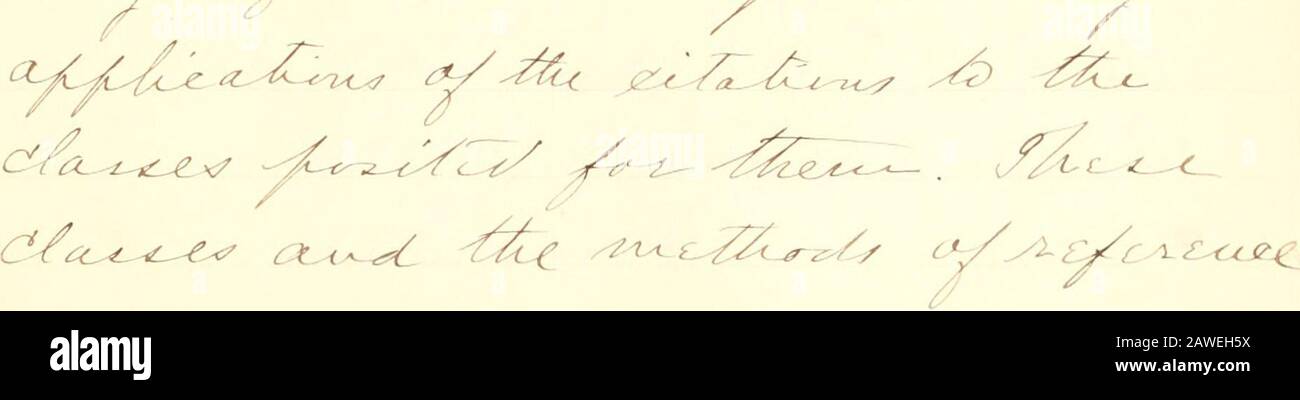 applications of the citations to the
classes posited for them. These
classes and the methods of reference
alamy
Image ID: 2AWEH5X
www.alamy.com